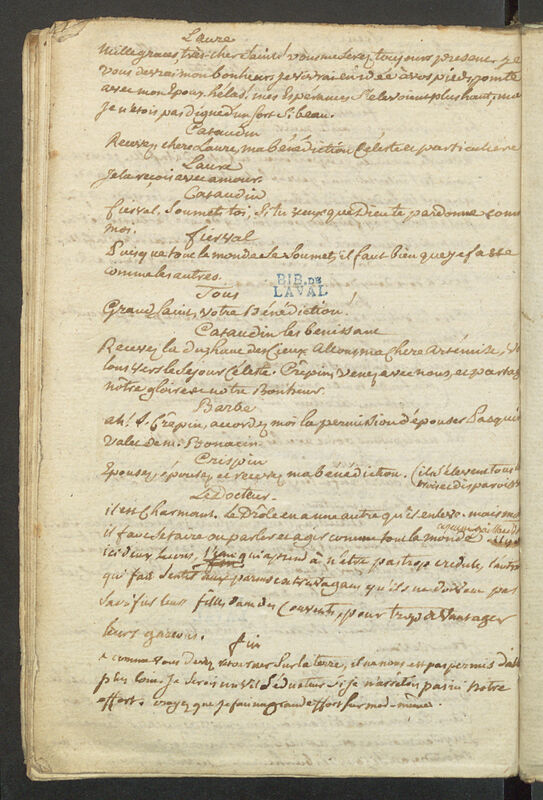 Laure
Mille graces, très cher Saint! vous me serez toujours present. je
vous devrai mon bonheur. je vous verrai en idée à vos pieds, monté
avec mon Epoux. hélas! mes Espérances S'elevoient plus haut, mais
je n'étois pas digne d'un sort Si beau.
Cataudin
Recevez, chere Laure, ma bénédiction Céleste et particuliére
Laure
je la reçois avec amour.
Cataudin
fierval, Soumets toi, Si tu veux que Dieu te pardonne comme
moi.
fierval
Puisque tout le monde se Soumet, il faut bien que je fasse
comme les autres.
BIB. DE
LAVAL
Tous
Grand Saint, votre Bénédiction!
Cataudin les benissant
Recevez la du haut des Cieux. Allons ma Chere Artémise,
lons vers le Sejour Céleste. Crêpin, venez avec nous, et partag
nôtre gloire et nôtre Bonheur.
Barbe
ah! S. Crêpin, accordez moi la permission d'épouser Pasquin
valet de m. Bonacin.
Crispin
Epousez, épousez, et recevez ma bénédiction. (ils s'élevent tous
trois et disparoiss
Le Docteur
il est Charmant. Le Drôle en a une autre qu'il enleve. mais
il faut se taire ou parler et agir comme tout le monde.
ici deux Leçons, l'une qui aprend à n'être pas trop credule, l'autre
qui fait Sentir aux parens extravagans qu'ils ne doivent pas
Sacrifier leurs filles dans des Couvents, pour trop avantager
leurs garçons.
fin
comme vous devez retourner Sur la terre, il ne nous est pas permis d'al
plus loin. Je Serois un vil Séducteur Si je n'arrêtois pas ici Nôtre
effort. croyez que je fais un grand effort Sur moi-même.